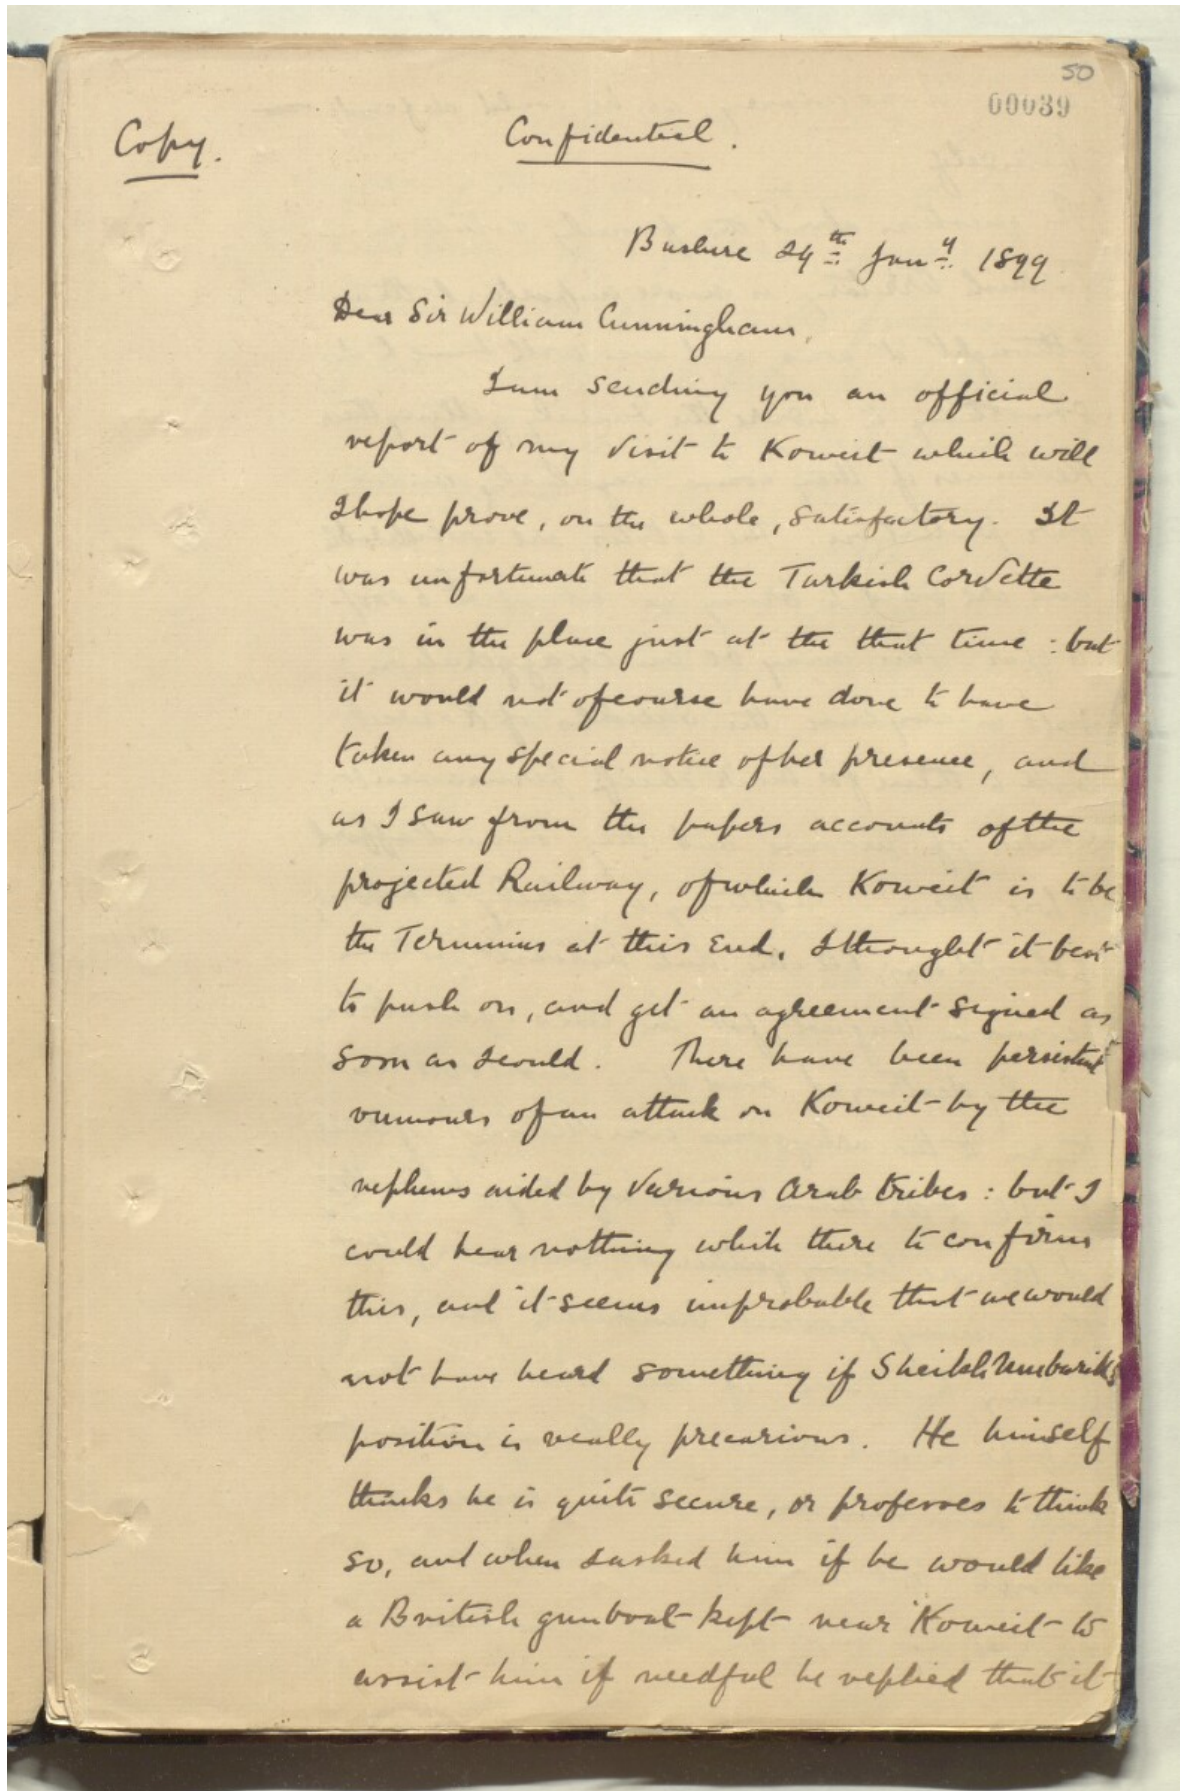 50
00039
Copy.
Confidential.
Bushire 24th Jany 1899
Dear Sir William Cunningham,
I am sending you an official
report of my visit to Koweit which will
I hope prove, on the whole, satisfactory. It
was unfortunate that the Turkish Corvette
was in the place just at the that time : but
it would not of course have done to have
taken any special notice of her presence, and
as I saw from the papers accounts of the
projected Railway, of which Koweit is to be
the Terminus at this End, I thought it best
to push on, and get an agreement signed as
soon as I could. There have been persistent
rumours of an attack on Koweit by the
nephews aided by various Arab tribes : but I
could hear nothing while there to confirm
this, and it seems improbable that we would
not have heard something if Sheikh Mubarik's
position is really precarious. He himself
thinks he is quite secure, or professes to think
so, and when I asked him if he would like
a British gunboat kept near Koweit to
assist him if needful he replied that it